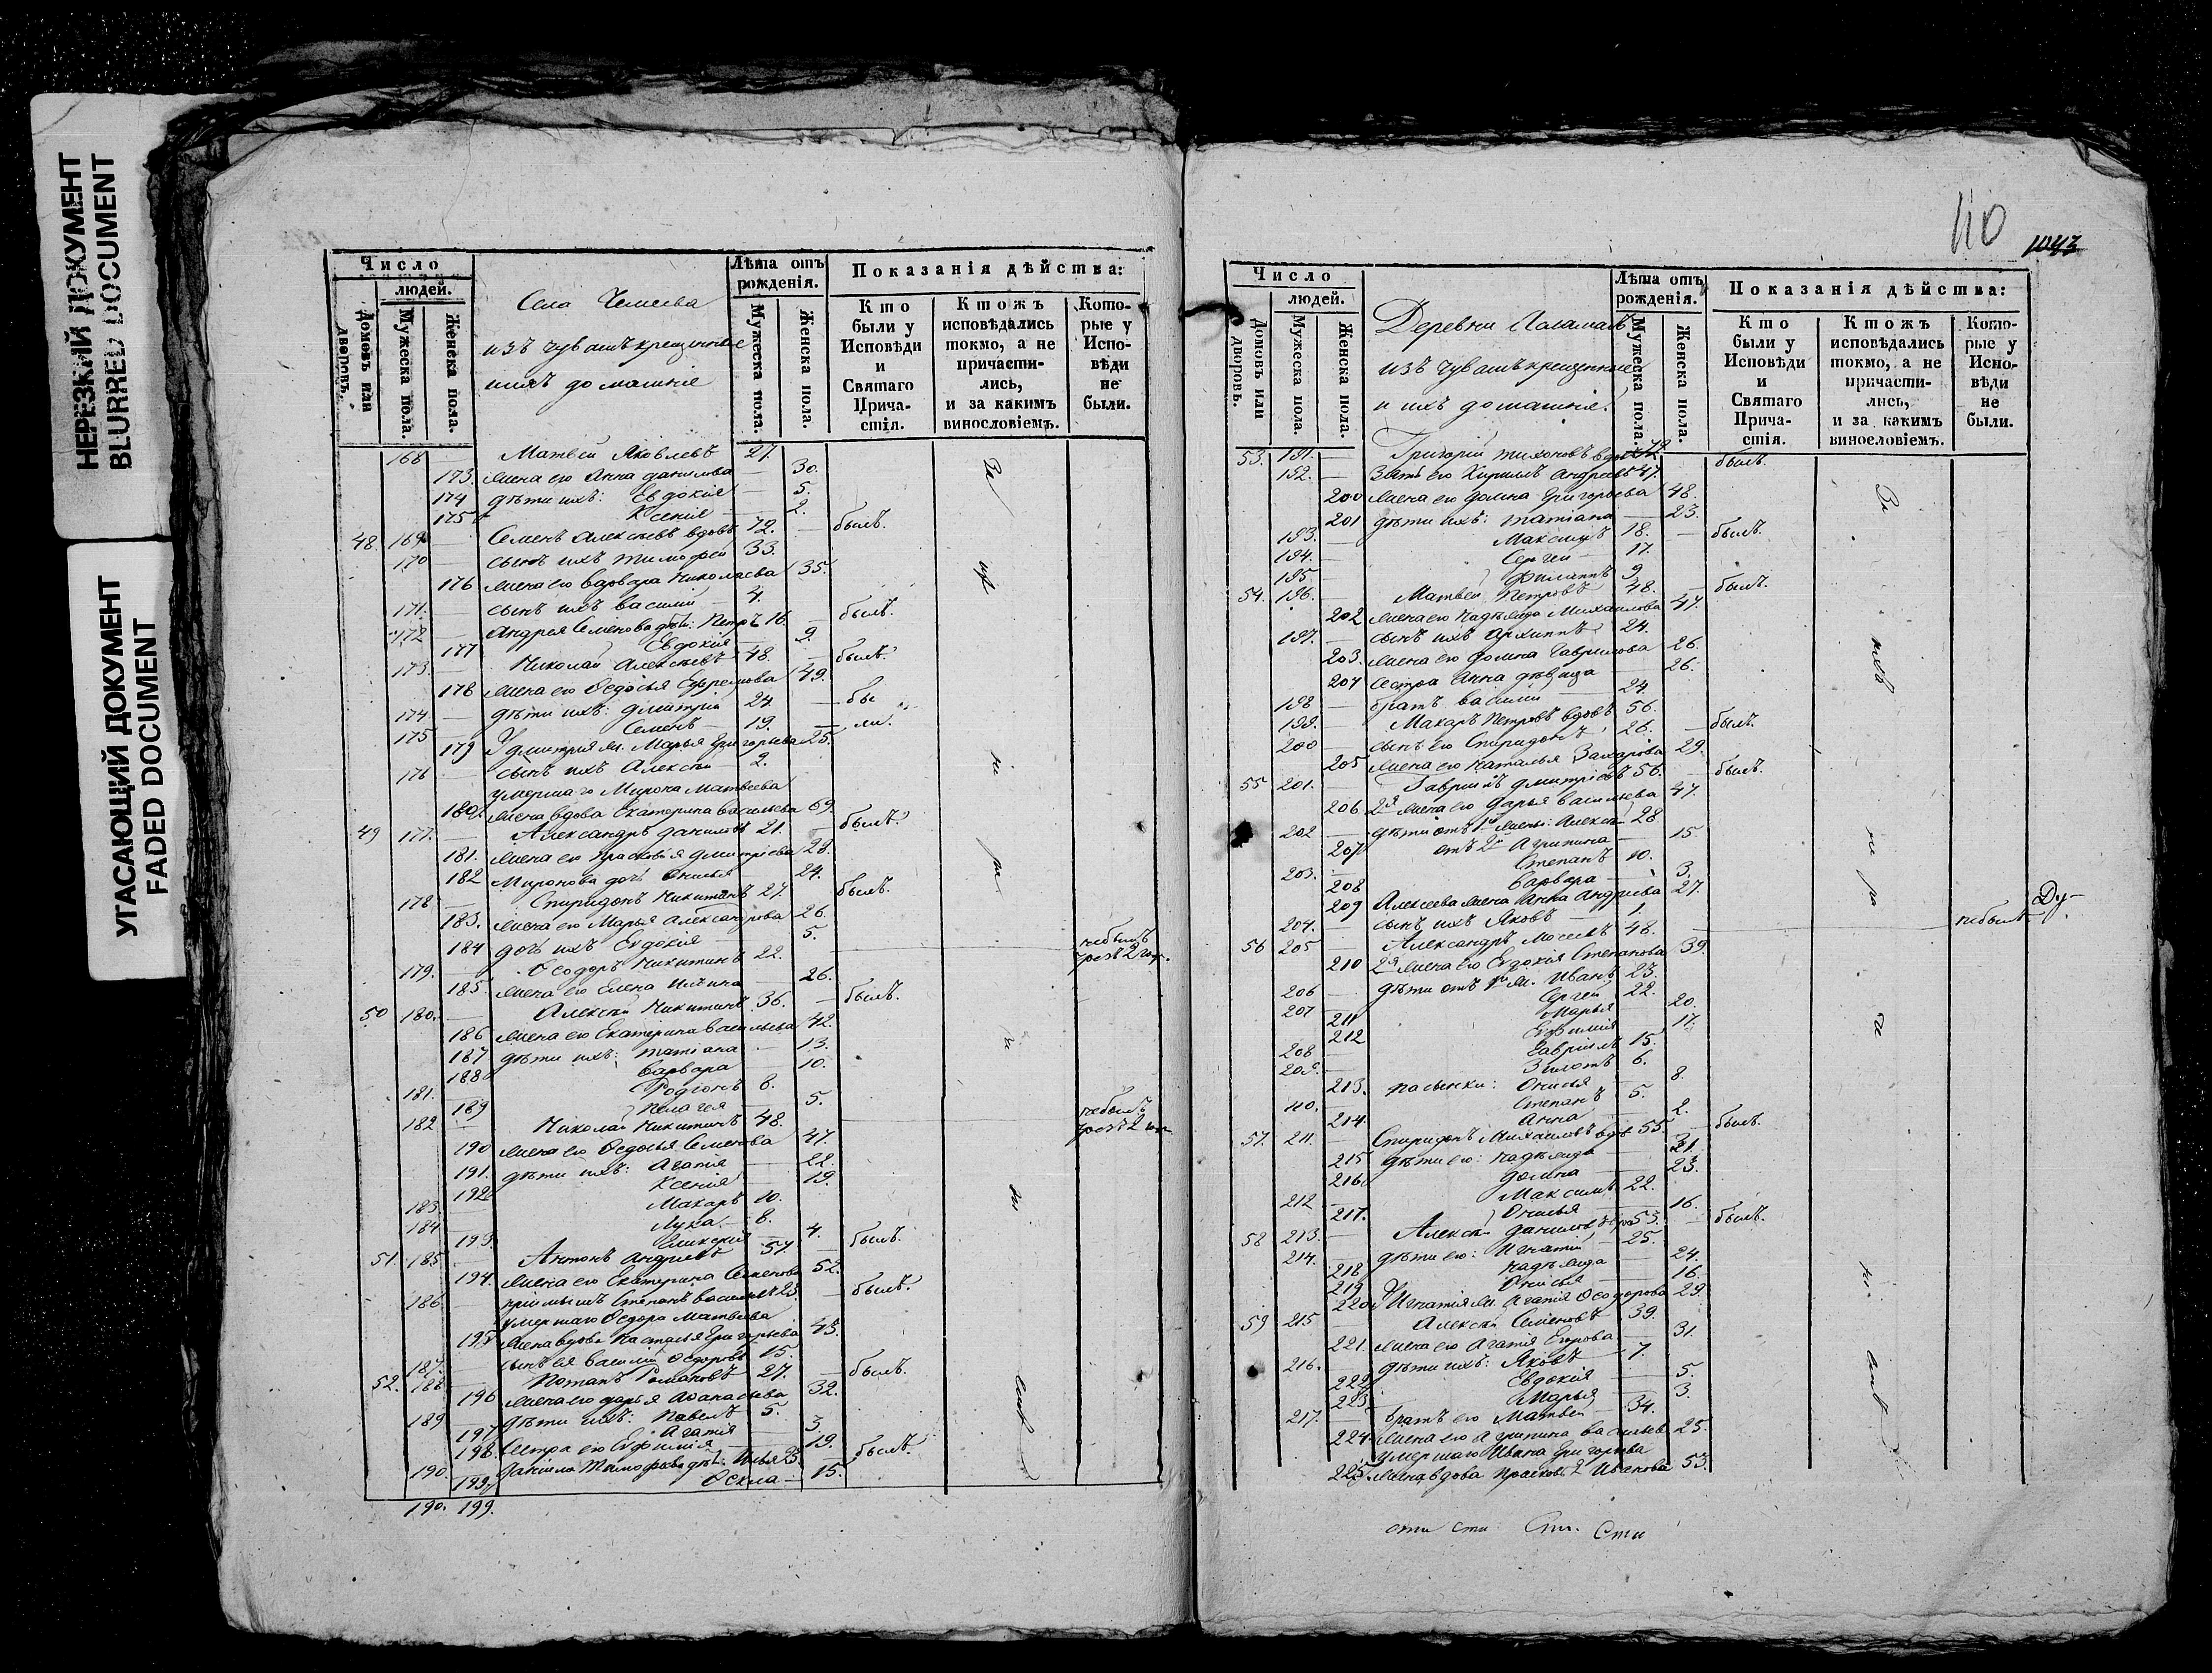 НЕРЕЗКИЙ ДОКУМЕНТ
BLURRED DOCUMENT
УГАСАЮЩИЙ ДОКУМЕНТ
FADED DOCUMENT
Число
людей.
Домовъ или дворовъ.
Мужеска пола.
Женска пола.
Села
изъ чувашъ крещенные
ихъ домашніе
Лѣта отъ рожденія.
Мужеска пола.
Женска пола.
Показанія дѣйства:
Кто были у Исповѣди и Святаго Прича-стія.
Ктожъ исповѣдались токмо, а не причасти-лись, и за какимъ винословіемъ.
Кото-рые у Испо-вѣди не были.
168 Матвей Яковлевъ 27.
173. жена его Анна Данилова — 30.
174 дѣти ихъ: Евдокія — 5.
175 Ксенія — 2.
48. 169 — Семенъ Алексѣевъ вдовъ 72. — былъ.
170 — сынъ ихъ Тимофей 33.
176 жена его Варвара Николаева 35.
171. — сынъ ихъ Василій — 4.
172 — Андрея Семенова дѣти: Петръ 16. — былъ.
177 Евдокія — 9.
173. — Николай Алексѣевъ 48. — былъ.
178 жена его Ѳедосья Ефремова 49.
174 — дѣти ихъ: Дмитрій 24. — бы
175 — Семенъ 19. — ли.
179 У Дмитрія ж. Марья Григорьева 25.
176 — сынъ ихъ Алексѣй 2.
умершаго Мирона Матвеева
180. жена вдова Екатерина Васильева 69.
49 177. — Александръ Даниловъ 21. — былъ.
181. жена его Прасковья Дмитріева 28.
182 Миронова дочь Онисья 24.
178 — Спиридонъ Никитинъ 27. былъ.
183. жена его Марья Александрова 26.
184 дочь ихъ Евдокія — 5.
179. — Ѳеодоръ Никитинъ 22. небылъ
185. жена его Елена Ильина — 26.
50 180. — Алексѣй Никитинъ 36. — былъ.
186 жена его Екатерина Васильева 42.
187 дѣти ихъ: Татіана — 13.
188 Варвара — 10.
181. — Родіонъ 8.
189 Пелагея 5.
182 — Николай Никитинъ 48. небылъ
190 жена его Ѳедосья Семенова 47.
191. дѣти ихъ: Агатія — 22.
192 Ксенія — 19.
183. Макаръ 10.
184. — Лука. — 8.
193. — 4.
51. 185. — Антонъ Андреевъ 57. — былъ.
194. жена его Екатерина Семенова 52.
186. — пріимышъ Степанъ Васильевъ 25 — былъ.
умершаго Ѳедора Матвеева
195 жена вдова Настасья Григорьева 43.
187. — сынъ ея Василій Ѳедоровъ 15.
52. 188 — Потапъ Романовъ 27. — былъ.
196 жена его Дарья Аѳанасьева 32.
189 — дѣти ихъ: Павелъ 5.
197 Агатія — 3.
198. Сестра его Евфимія — 19.
190. Даніила Тимофеева дѣти: Илья 23. былъ.
199. Ѳекла — 15.
190. 199.
110
1043
Число
людей.
Домовъ или дворовъ.
Мужеска пола.
Женска пола.
Деревни
изъ чувашъ крещенные
и ихъ домашніе.
Лѣта отъ рожденія.
Мужеска пола.
Женска пола.
Показанія дѣйства:
Кто были у Исповѣди и Святаго Прича-стія.
Ктожъ исповѣдались токмо, а не причасти-лись, и за какимъ винословіемъ.
Кото-рые у Испо-вѣди не были.
53. 191. — Григорій Тихоновъ вдовъ былъ.
192. — Зять его Кириллъ Андреевъ 47.
200 жена его Домна Григорьева 48.
201 дѣти ихъ: Татіана — 23.
193. — Максимъ 18. — былъ.
194. — Сергей 17.
195 Филиппъ 9
54. 196. — Матвей Петровъ 48. — былъ.
202 жена его Надѣжда Михаилова 47.
197. — сынъ ихъ Архиппъ 24.
203. жена его Домна Гаврилова 26.
204 Сестра Анна дѣвица 26.
198 — братъ Василій 24
199. Макаръ Петровъ вдовъ 56. — былъ.
200 — сынъ его Спиридонъ 26.
205 жена его Наталья Захарова 29.
55 201. — Гавріилъ Дмитріевъ 56. — былъ.
206 2я жена его Дарья Васильева 47.
202 — дѣти отъ 1й жены: Алексѣй 28
207 отъ 2й Агрипина — 15
203. — Степанъ 10.
208 Варвара — 3.
209 Алексеева жена Анна Андреева 27.
204. — сынъ ихъ Яковъ — 1.
56 205 — Александръ Моисеевъ 48. — небылъ
210 2я жена его Евдокія Степанова 39.
206 — дѣти отъ 1й ж. Иванъ 23.
207 Сергей 22.
211 Марья — 20.
212 Евфимія 17.
208 — Гавріилъ 15.
209. — 6.
213. пасынки: Онисья — 8.
110. Степанъ 5.
214. Анна — 2.
57. 211. — Спиридонъ Михаиловъ вдов 55. былъ.
215 дѣти его: Надѣжда — 31.
216. Домна — 23.
212 — Максимъ 22.
217. Онисья — 16.
58 213. — Алексѣй Даниловъ 53. — былъ.
214. — дѣти его: Игнатій 25.
218 Надѣжда — 24.
219 Онисья — 16.
220 У Игнатія ж. Агатія Ѳеодорова 29.
59 215 — Алексѣй Семеновъ 39.
221. жена его Агатія Егорова — 31.
216. — дѣти ихъ: Яковъ 7.
222 Евдокія — 5.
223 Марья — 3.
217. — братъ его Матвей — 34.
224. жена его Агрипина Васильева 25.
умершаго Ивана Григорьева
225. жена вдова Иванова 53.